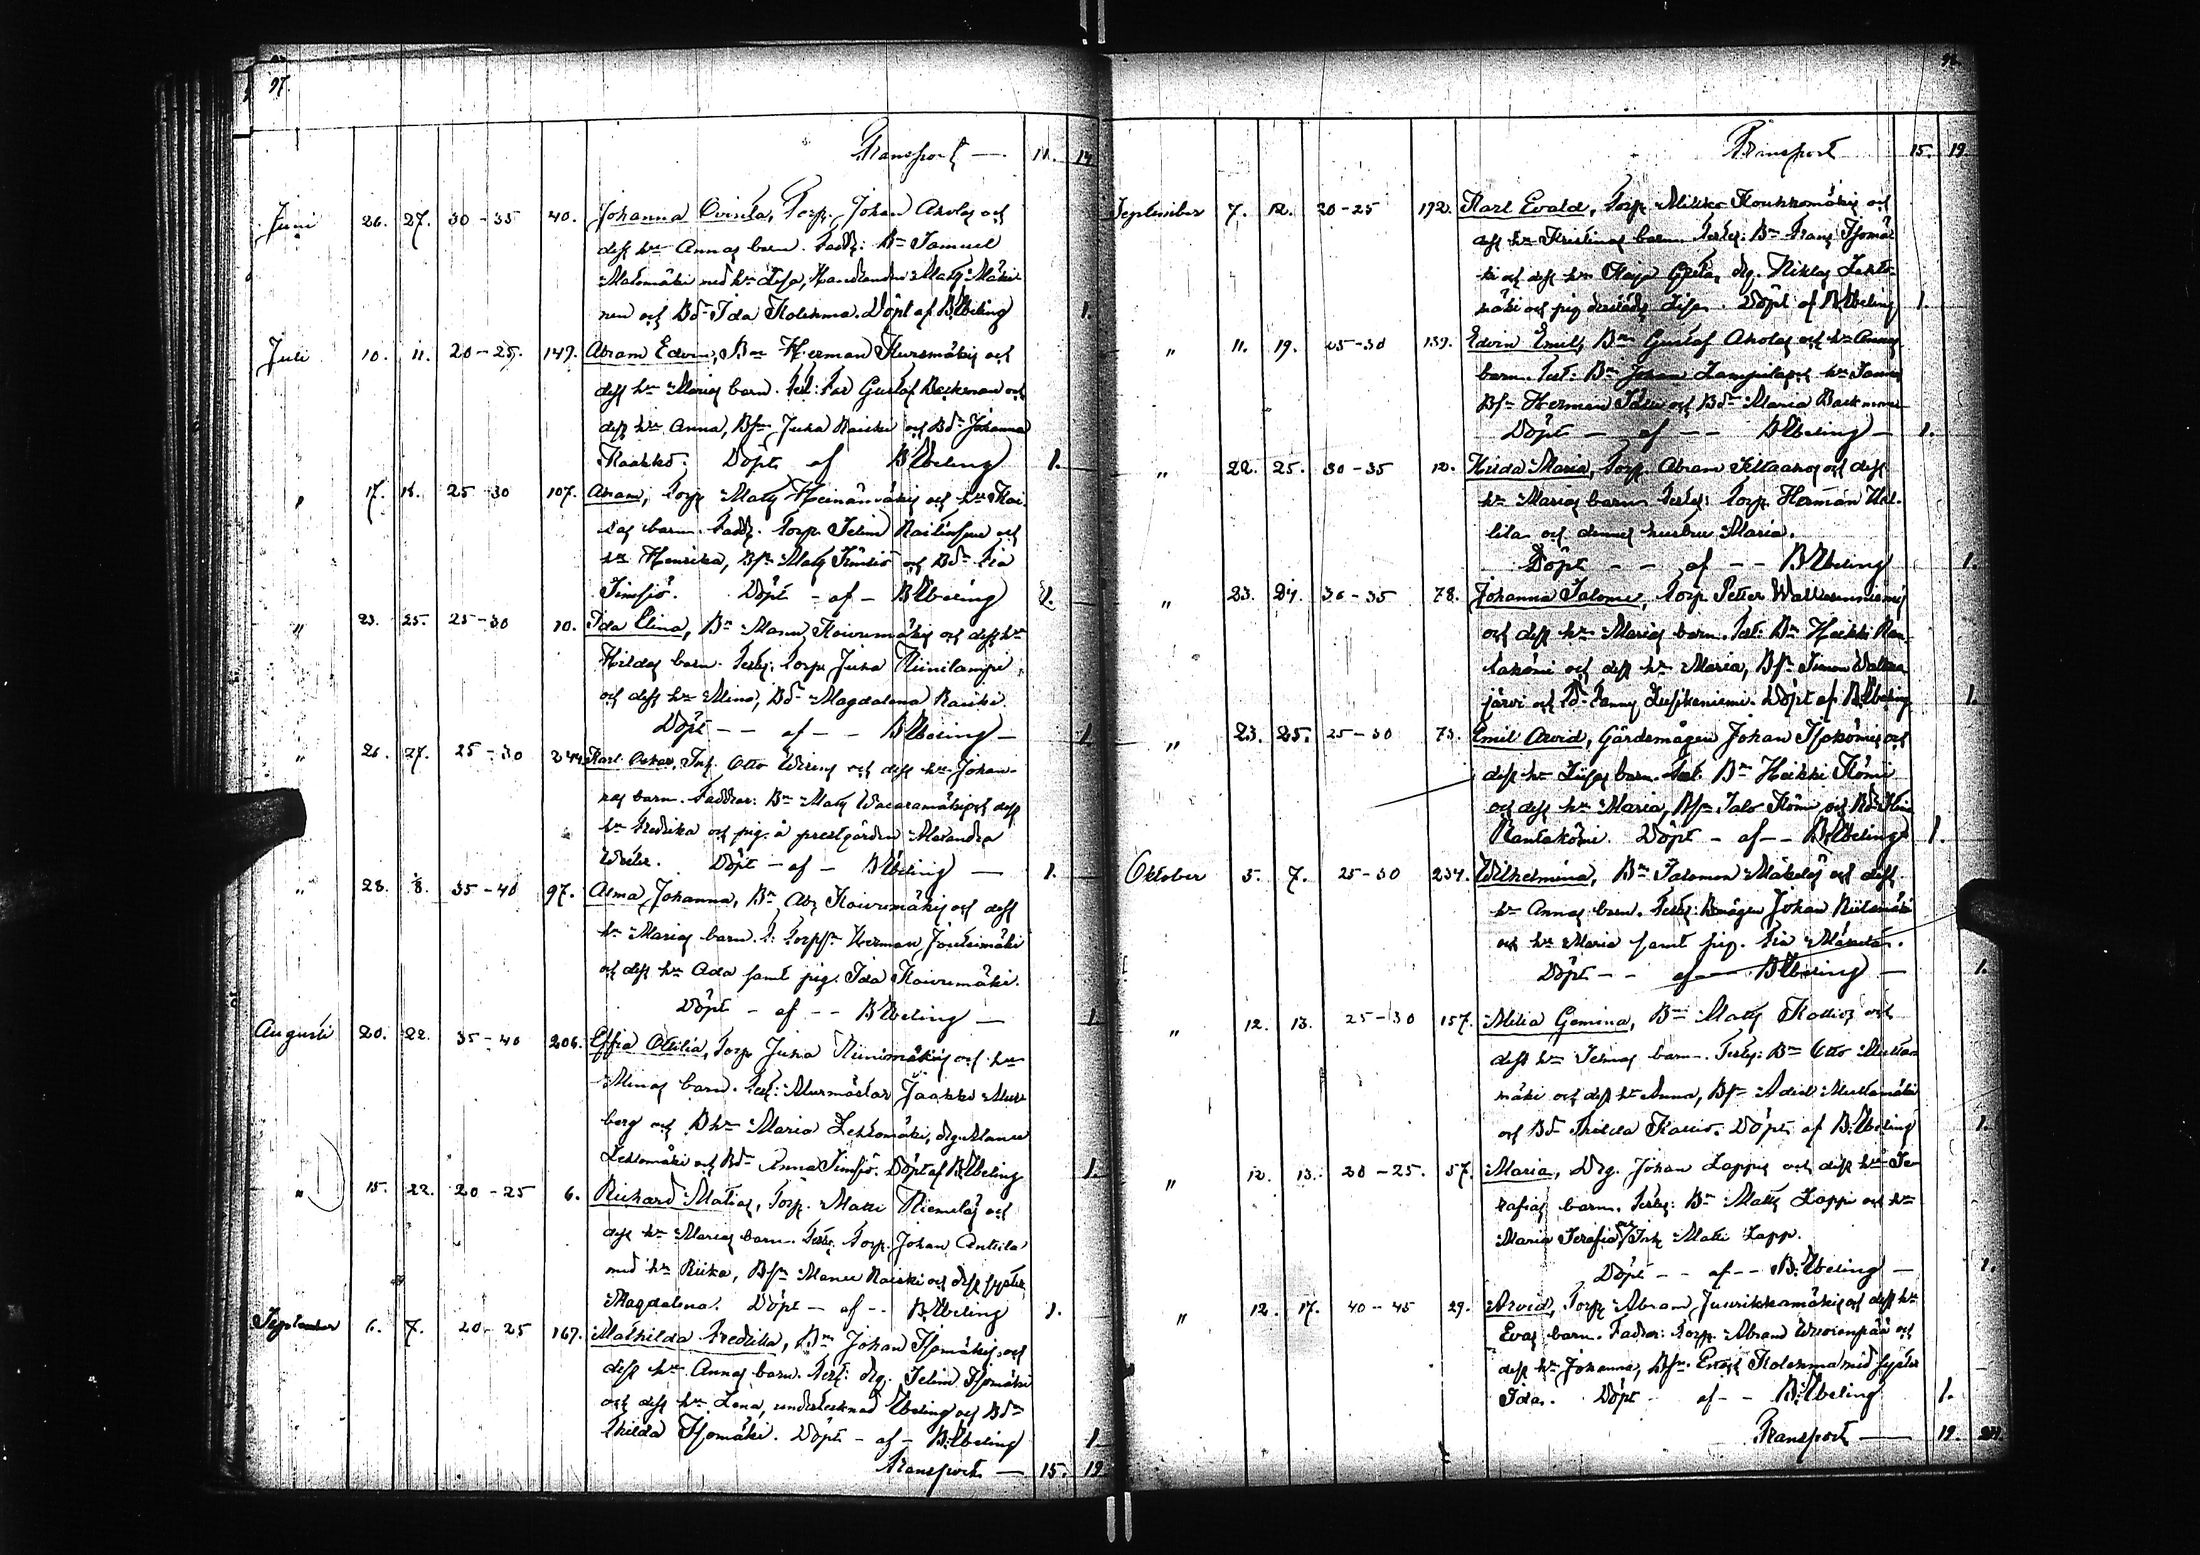 97.
Transport — 11. 14
Juni 26. 27. 30-35 40. Johanna Ovinta, Torp. Johan Aholas och
dess hu Annas barn. Fadd: Bn Samuel
Matomäki med hu Lisa, Handlanden Matts Mäki-
nen och Bdr Ida Kolehma. Döpt af B. Ebeling 1.
Juli 10. 11. 20-25 149. Abram Edvin, Bn Herman Kursmäkis och
dess hu Marias barn. Test: Far Gustaf Backman och
dess hu Anna, Bsn Juha Raiski och Bdr Johanna
Kaakko. Döpt af B Ebeling 1.
" 17. 18. 25-30 107. Abram, Torp Matts Heinämäkis och hu Kai-
sas barn. Fadd. Torp. Selim och
hu Henrika, Bsn Matts Simsiö och Bdr Eva
Simsjö. Döpt - af - B Ebeling 1.
" 23. 25. 25-30 10. Ida Elina, Bn Manu Koivumäkis och dess hu
Hildas barn. Test: Torp Juha Niinilampi
och dess hu Mina, Bdr Magdalena Raiski.
Döpt - - af - - B Ebeling - 1
" 26. 27. 25-30 244. Karl Oskar, Otto och dess hu Johan-
nas barn. Faddrar: Bn Matts Wacaramäki och dess
hu Fredrika och pig. å prestgården Alexandra
Döpt - af - B Ebeling — 1.
" 28. 1/8. 35-40 97. Alma Johanna, Bn Abr Koivumäkis och dess
hu Marias barn. T: Torpsn Herman Joutsimäki
och dess hu Ada samt pig. Ida Koivumäki.
Döpt - af - - B Ebeling — 1
Augusti 20. 22. 35-40 206. Effia Otilia, Torp Juha Niinimäkis och hu
Minas barn. Test: Murmästar Jaakko Mur-
berg och B hu Maria Lehtomäki, drg Manu
Lehtomäki och Bdr Anna Simsiö. Döpt af B. Ebeling 1.
" 15. 22. 20-25 6. Richard Matias, Torp. Matti Niemeläs och
dess hu Marias barn. Test: Torp. Johan Anttila
med hu Riika, Bsn Manu Raiski och dess syster
Magdalena. Döpt - af - - B. Ebeling 1.
September 6. 7. 20-25 167. Mathilda Fredrika, Bn Johan Isomäkis och
dess hu Annas barn. Test: drg. Selim Isomäki
och dess hu Lena, undertecknad Ebeling och Bdr
Thilda Isomäki. Döpt - af - B. Ebeling 1
Transport — 15. 19
Transport 15. 19.
September 7. 12. 20-25 192. Karl Evald, Torp Mikko Koukkomäkis och
dess hu Kristinas barn. Test: Bn Frans Isomä-
ki och dess hu Kaisa Greta, drg. Niklas Lehto-
mäki och pig Lisa. Döpt af B. Ebeling 1.
" 11. 19. 25-30 139. Edvin Emil, Bn Gustaf Aholas och hu Annas
barn. Test: Bn Johan Lampila och hu Sanna
Bsn Herman och Bdr Maria Backman
Döpt - af - - B Ebeling - 1.
" 22. 25. 30-35 12. Hilda Maria, Torp. Abram och dess
hu Marias barn. Test: Torp Herman
och dennes hustru Maria.
Döpt - - af - - B Ebeling 1.
" 23. 24. 30-35 78. Johanna Salome, Torp Petter
och dess hu Marias barn. Test: Bn Heikki Ran-
takömi och dess hu Maria, Bsn Simon
järvi och Bd Fanny Döpt af B. Ebeling 1.
" 23. 25. 25-30 73. Emil Arvid, Gårdsmågen Johan Isokömis och
dess hu Liisas barn. Test: Bn Heikki Kömi
och dess hu Maria, Bsn Salo Kömi och Bd
Rantakömi. Döpt - af - - B. Ebeling 1.
Oktober 5. 7. 25-30 234. Wilhelmina, Bn Salomon Mäkeläs och dess
hu Annas barn. Test: Bmågen Johan
och hu Maria samt pig. Eva
Döpt - - af — B Ebeling — 1.
" 12. 13. 25-30 157. Milia Gemina, Bn Matts Kattios och
dess hu Selmas barn. Test: Bn Otto Multa-
mäki och dess hu Anna, Bsn Adiel Multamäki
och Bd Thilda Kattio. Döpt af B. Ebeling 1.
" 12. 13. 20-25. 57. Maria, Drg. Johan Lappis och dess hu Se-
rafias barn. Test: Bn Matts Lappi och hu
Maria Serafia och Inh Matti Lapp.
Döpt - - af - - B. Ebeling — 1.
" 12. 17. 40-45 29. Arvid, Torp. Abram Juurikkamäkis och dess hu
Evas barn. Fadrar: Torp. Abram Wuorenpää och
dess hu Johanna, Bsn. Kolehma med syster
Ida. Döpt - af - - B. Ebeling 1.
Transport — 19.